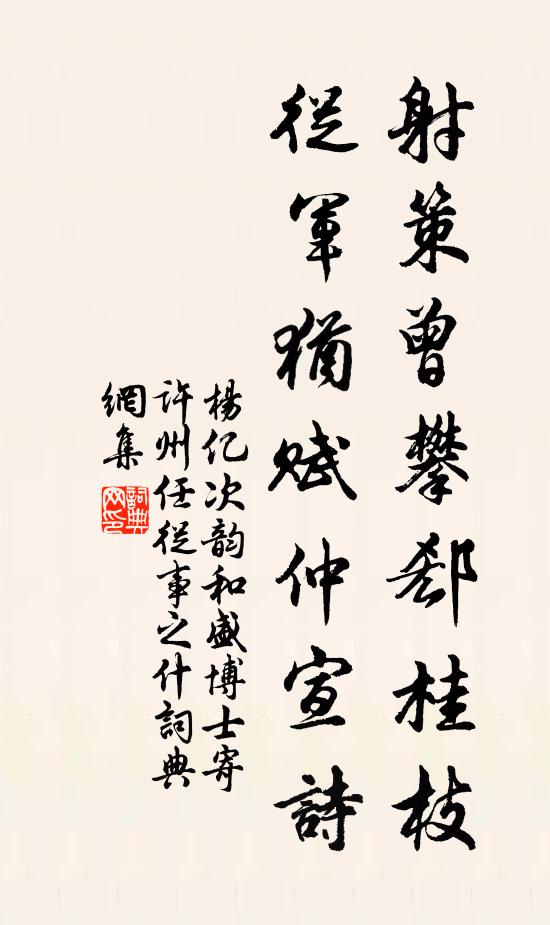 射策曾攀郄桂枝
從軍猶賦仲宣詩
楊億次韵和盛博士寄
許州任從事之什詞典
網集
詞典網印